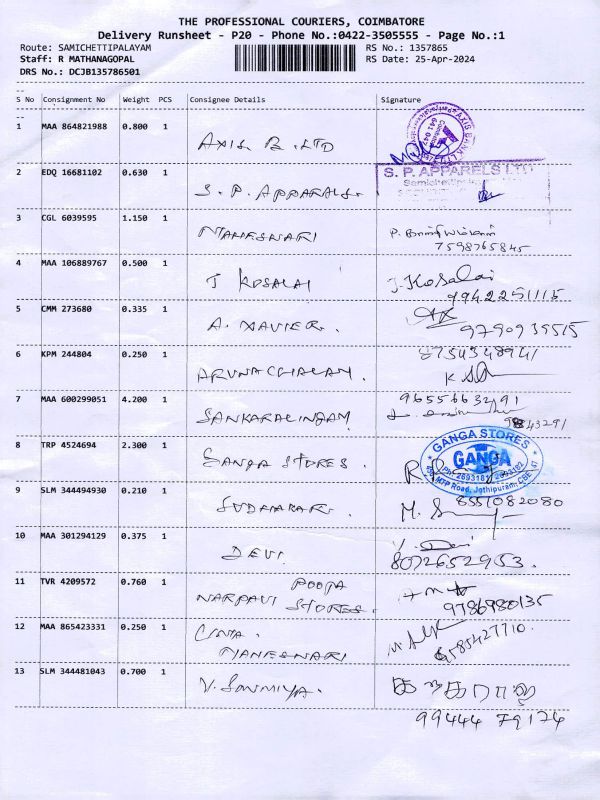 THE PROFESSIONAL COURIERS, COIMBATORE
Delivery Runsheet - P20 - Phone No.:0422-3505555 - Page No.:1
Route: SAMICHETTIPALAYAM RS No.: 1357865
Staff: R MATHANAGOPAL RS Date: 25-Apr-2024
DRS No.: DCJB135786501
S No Consignment No Weight PCS Consignee Details Signature
1 MAA 864821988 0.800 1 AXIS B. LTD
AXIS BANK LTD
641 047
2 EDQ 16681102 0.630 1 S. P. APPARALS.
S. P. APPARELS LTD
3 CGL 6039595 1.150 1 MAHESWARI P.
7598765845
4 MAA 106889767 0.500 1 T KOSALAI J. Kosalai
9942251115
5 CMM 273680 0.335 1 A. XAVIER.
9790939515
6 KPM 244804 0.250 1 ARUNACHALAM. 8754348941
7 MAA 600299051 4.200 1 SANKARALINGAM 9655663291
8 TRP 4524694 2.300 1 GANGA STORES.
GANGA STORES
GANGA
MTP Road, Jothipuram, CBE 47
9 SLM 344494930 0.210 1 M. 8551082080
10 MAA 301294129 0.375 1 DEVI V. Devi
8072652953.
11 TVR 4209572 0.760 1 POOJA
NARPAVI STORES. 9786980135
12 MAA 865423331 0.250 1
MAHESWARI 9585427710.
13 SLM 344481043 0.700 1 V. SOWMIYA.
99444 79174